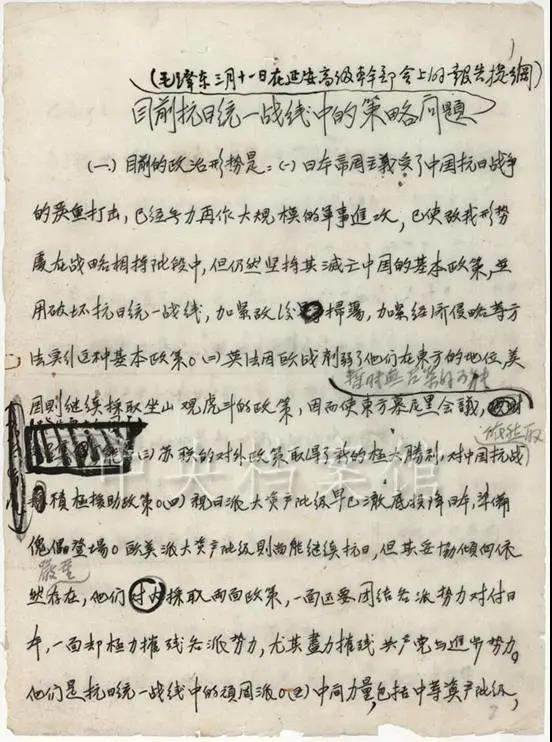 1
(毛泽东三月十一日在延安高级幹部会上的報告提綱)
目前抗日统一战线中的策略问题
(一)目前的政治形势是：(一)日本帝国主義受了中国抗日战争
的严重打击，已经无力再作大规模的軍事進攻，已使敌我形势
处在战略相持阶段中，但仍然坚持其滅亡中国的基本政策，並
用破坏抗日统一战线，加紧敌後掃蕩，加紧经济侵略等方
法实行这种基本政策。(二)英法因欧战削弱了他们在東方的地位，美
国则继续採取坐山观虎斗的政策，因而使東方慕尼黑会議，
暂时无召集的可能
(三)苏联的对外政策取得了新的極大勝利，对中国抗战
依然取
積極援助政策。(四)親日派大资产阶级早已澈底投降日本，準備
傀儡登場。欧美派大资产阶级则尚能继续抗日，但其妥協傾向依
严重
然存在，他们对内採取两面政策，一面还要团结各派势力对付日
本，一面却極力摧残各派势力，尤其盡力摧残共产党与進步势力。
他们是抗日统一战线中的頑固派。(五)中间力量，包括中等资产阶级，
中央档案馆